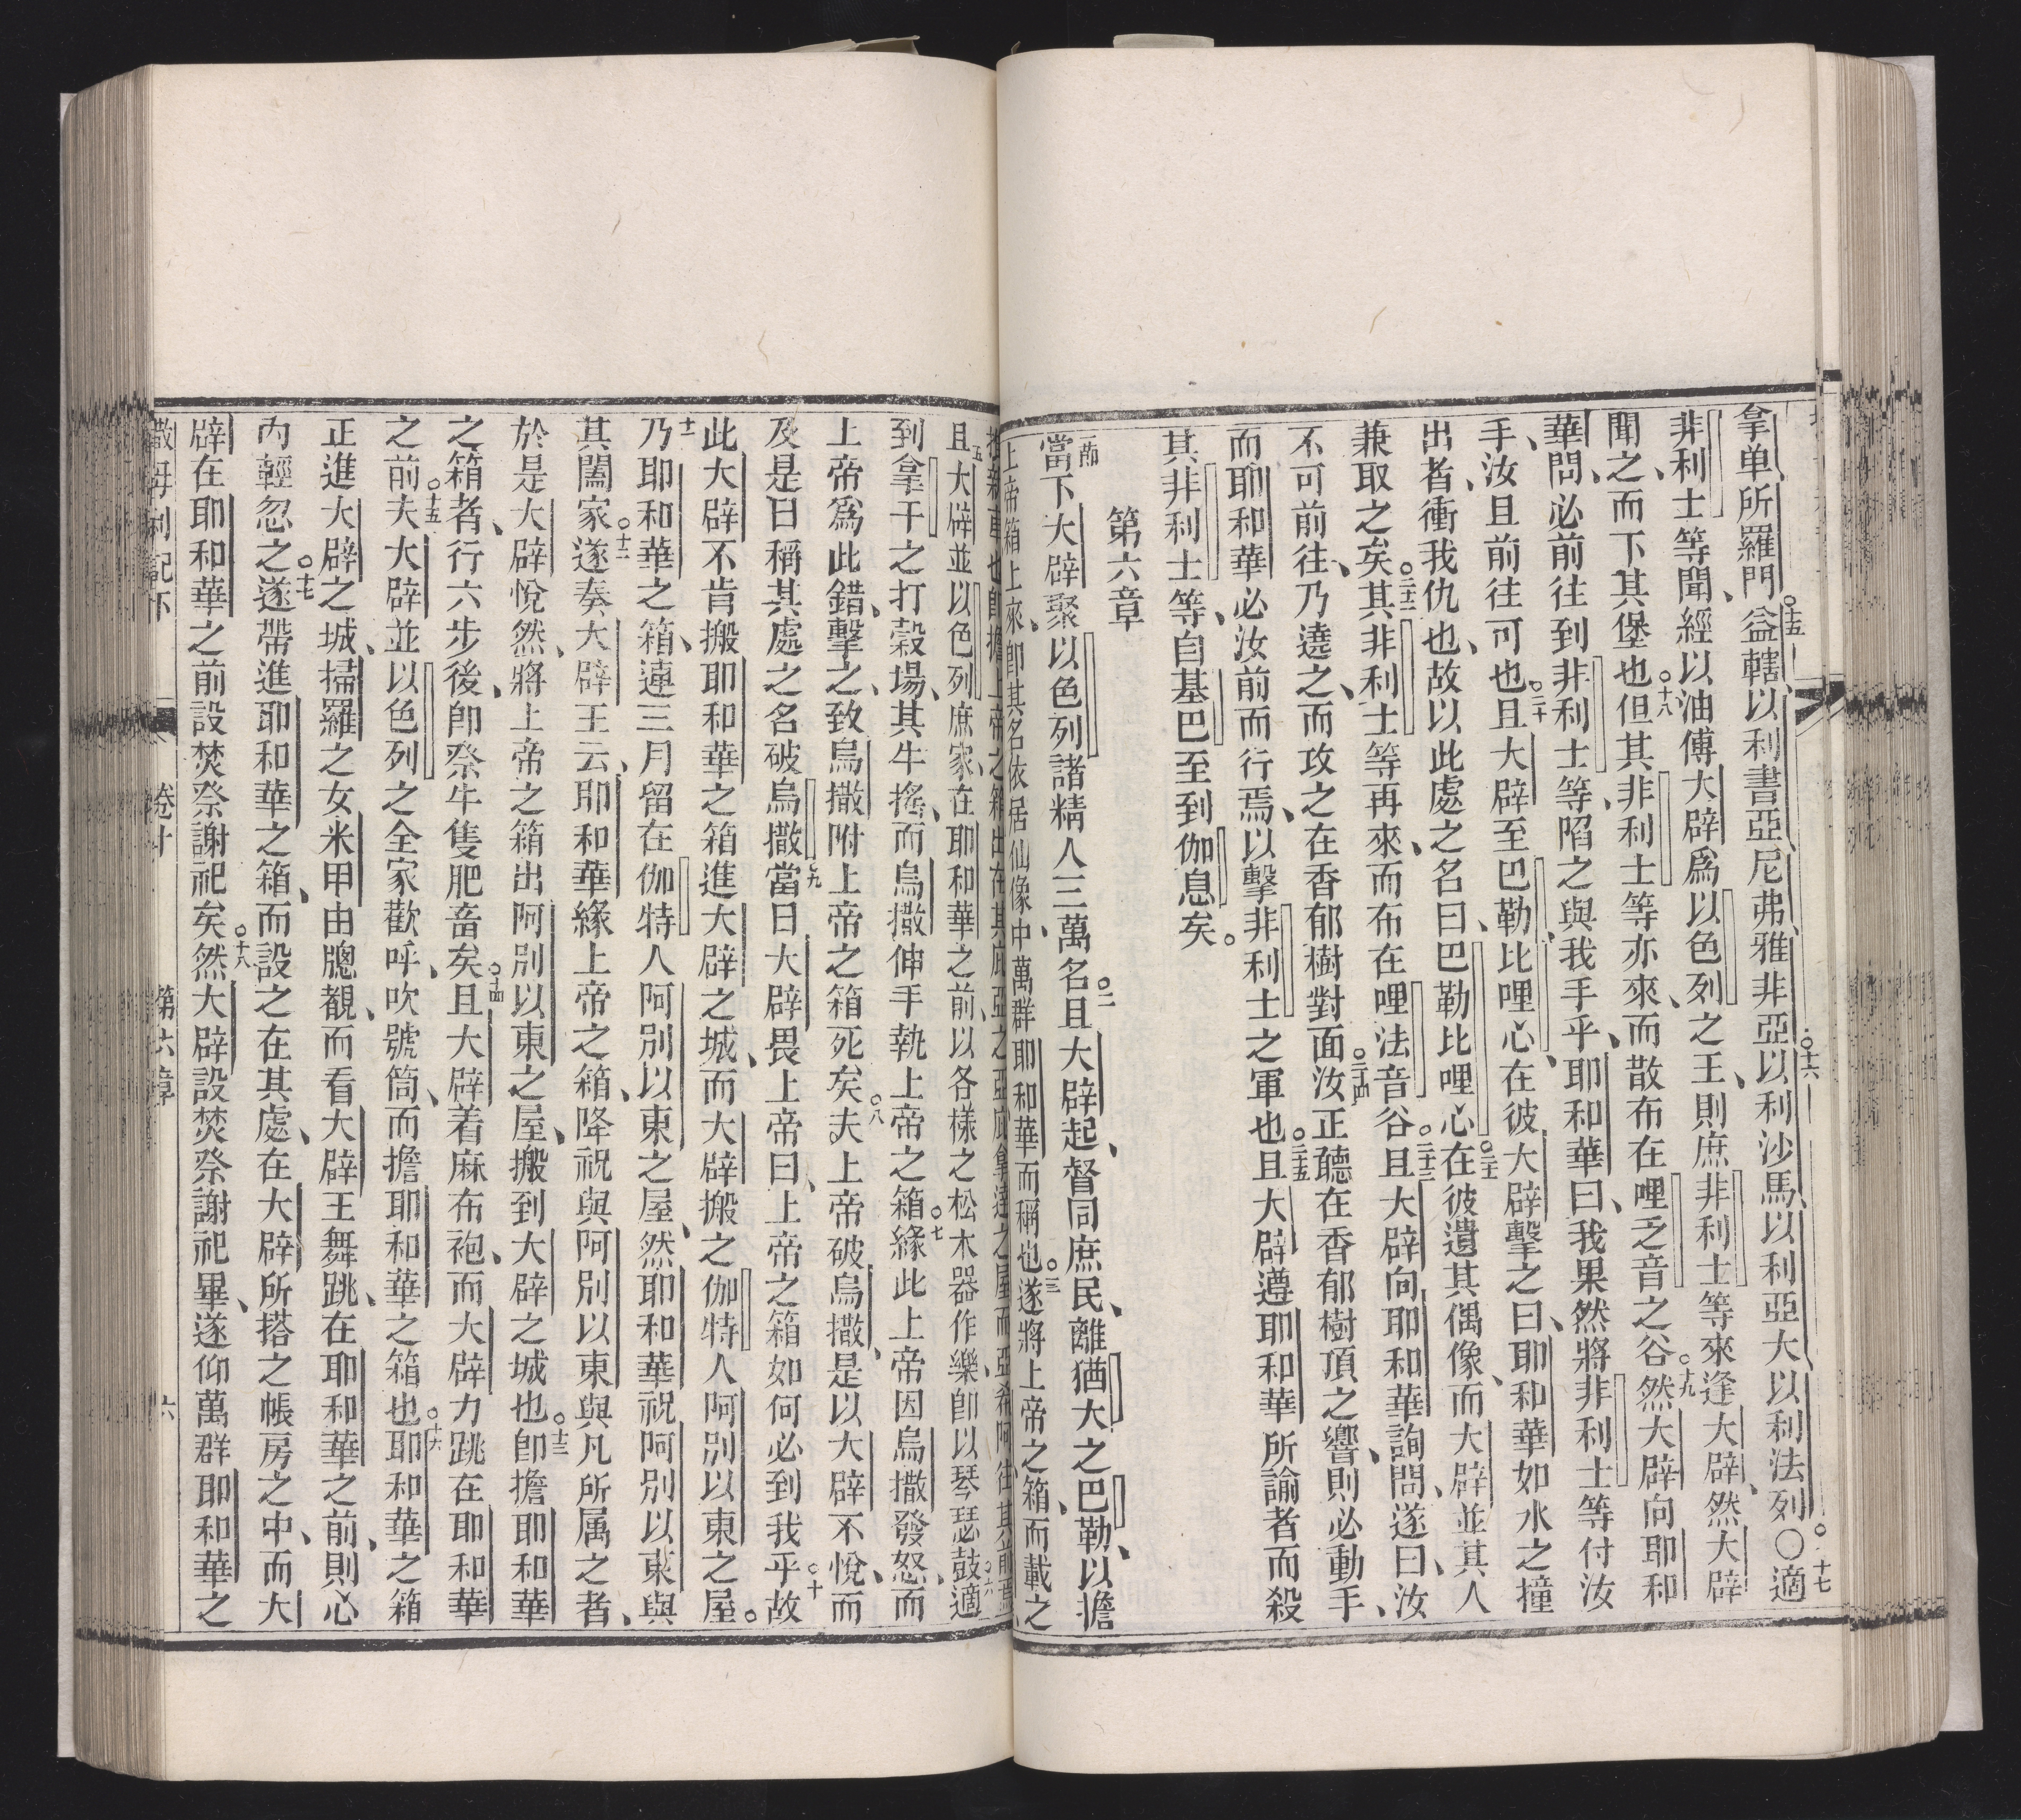 拿単、所羅門、○十五益轄、以利書亞、尼弗、雅非亞、○十六以利沙馬、以利亞大、以利法列。○十七適
非利士等聞、經以油傅大辟爲以色列之王、則庶非利士等來逢大辟、然大辟
聞之、而下其堡也○十八但其非利士等亦來、而散布在哩乏音之谷○十九然大辟向耶和
華問、必前往到非利士等、陷之與我手乎、耶和華曰、我果然將非利士等付汝
手、汝且前往可也○二十且大辟至巴勒比哩心、在彼大辟擊之曰、耶和華如水之撞
出者、衝我仇也、故以此處之名曰巴勒比哩心○二十一在彼遺其偶像、而大辟並其人
兼取之矣○二十二其非利士等再來、而布在哩法音谷○二十三且大辟向耶和華詢問、遂曰、汝
不可前往、乃遶之、而攻之在香郁樹對面○二十四汝正聽在香郁樹頂之響、則必動手、
而耶和華必汝前而行焉、以擊非利士之軍也○二十五且大辟遵耶和華所諭者、而殺
其非利士等、自基巴至到伽息矣。
第六章
一節當下大辟聚以色列諸精人三萬名○二且大辟起、督同庶民、離猶大之巴勒、以擔
上帝箱上來、卽其名依居仙像中、萬群耶和華而稱也○三遂將上帝之箱、而載之
五且大辟並以色列庶家、在耶和華之前、以各樣之松木器作樂、卽以琴瑟鼓○六適
到拿干之打穀場、其牛搖、而烏撒伸手執上帝之箱○七緣此上帝因烏撒發怒、而
上帝爲此錯、擊之、致烏撒附上帝之箱死矣○八夫上帝破烏撒、是以大辟不悅、而
及是日稱其處之名破烏撒○九當日大辟畏上帝曰、上帝之箱如何必到我乎○十故
此大辟不肯搬耶和華之箱進大辟之城、而大辟搬之伽特人阿別以東之屋。
十一乃耶和華之箱、連三月留在伽特人阿別以東之屋、然耶和華祝阿別以東與
其闔家○十二遂奏大辟王云、耶和華緣上帝之箱、降祝與阿別以東與凡所属之者、
於是大辟悅然、將上帝之箱出阿別以東之屋、搬到大辟之城也○十三卽擔耶和華
之箱者、行六步後、卽祭牛隻肥畜矣○十四且大辟着麻布袍、而大辟力跳在耶和華
之前○十五夫大辟並以色列之全家歡呼、吹號筒、而擔耶和華之箱也○十六耶和華之箱
正進大辟之城、掃羅之女米甲由牕觀、而看大辟王舞跳、在耶和華之前、則心
內輕忽之○十七遂帶進耶和華之箱、而設之在其處、在大辟所搭之帳房之中、而大
辟在耶和華之前設焚祭謝祀矣○十八然大辟設焚祭謝祀畢、遂仰萬群耶和華之
撒母耳記下 卷十 第六章 六